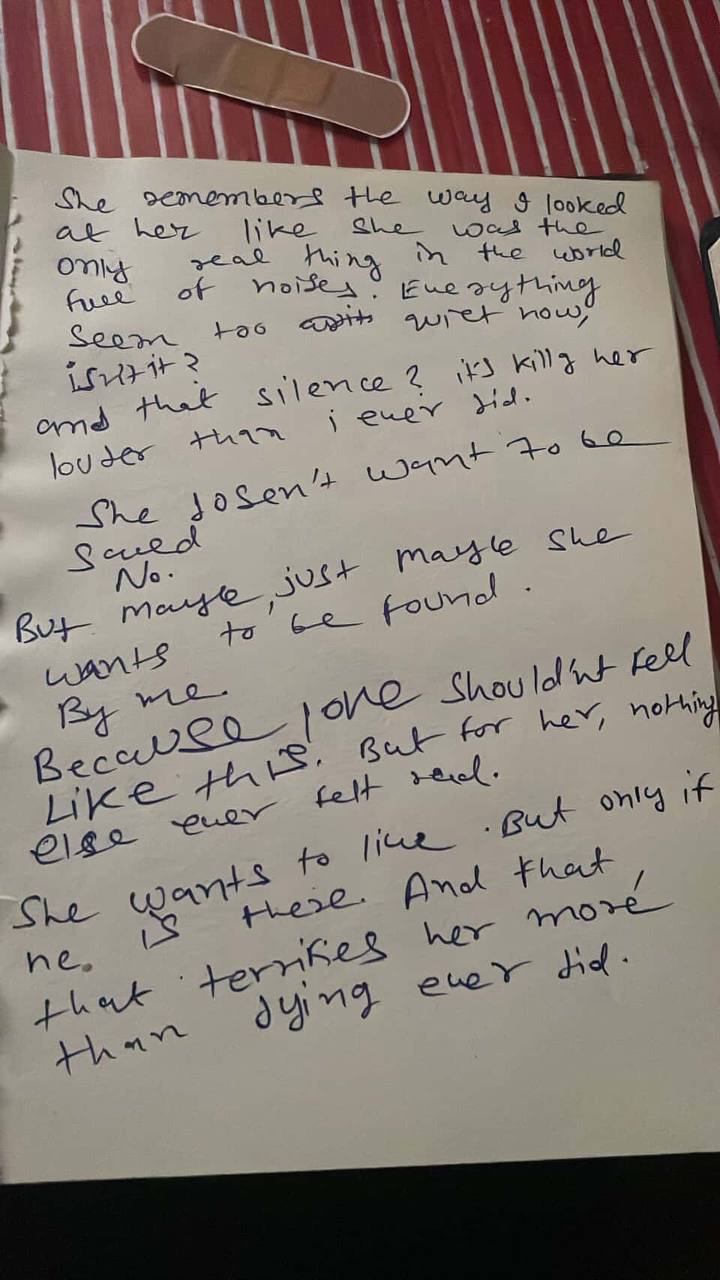 She remembers the way I looked
at her like she was the
only real thing in the world
full of noises. Everything
seem too quiet now,
isn't it?
and that silence? its killg her
louder than i ever did.
She dosen't want to be
saved
No.
But maybe, just maybe she
wants to be found.
By me.
Because love should'nt feel
Like this. But for her, nothing
else ever felt real.
She wants to live. But only if
he is there. And that,
that terrifies her more
than dying ever did.